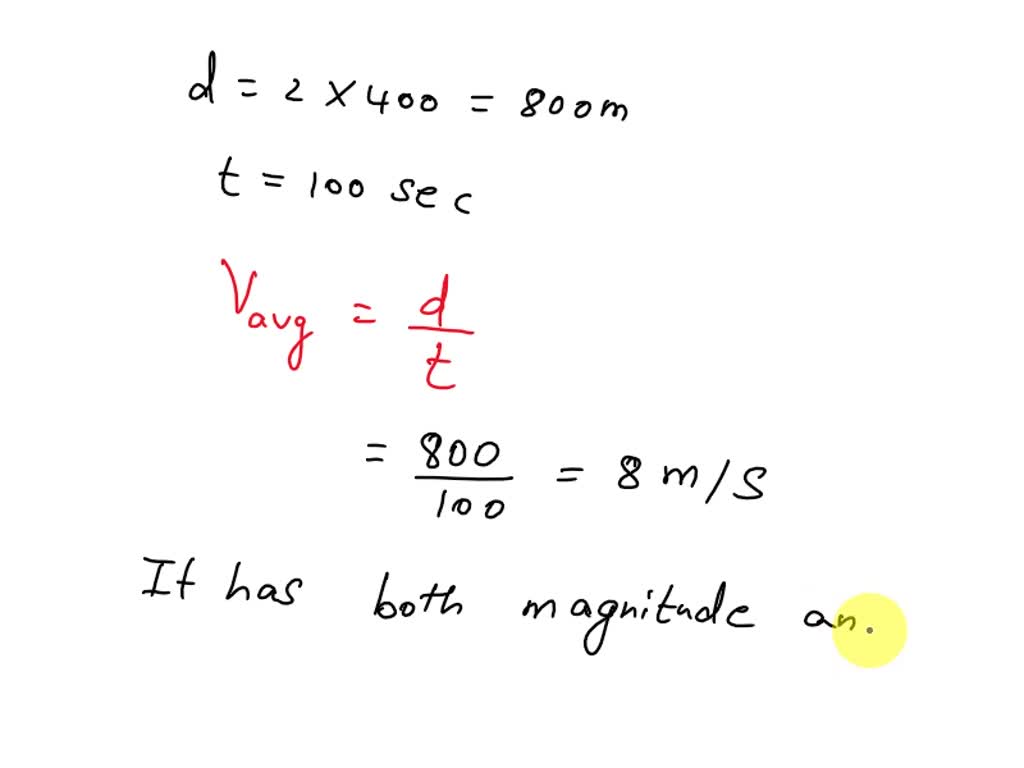 d = 2 × 400 = 800m
t = 100 sec
Vavg = d/t
= 800/100 = 8 m/s
It has both magnitude an